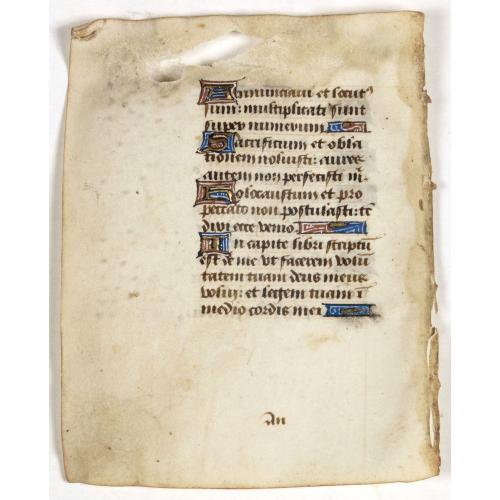 Annunciavi et locut9
sum: multiplicati sunt
super numerum
Sacrificium et obla
tionem noluisti: aures
autem non perfecisti m.
Holocaustum et pro
peccato non postulasti: tc
dixi ecce venio.
In capite libri scriptū
est de me vt facerem volū
tatem tuam deus meus
volui: et legem tuam ī
medio cordis mei
An